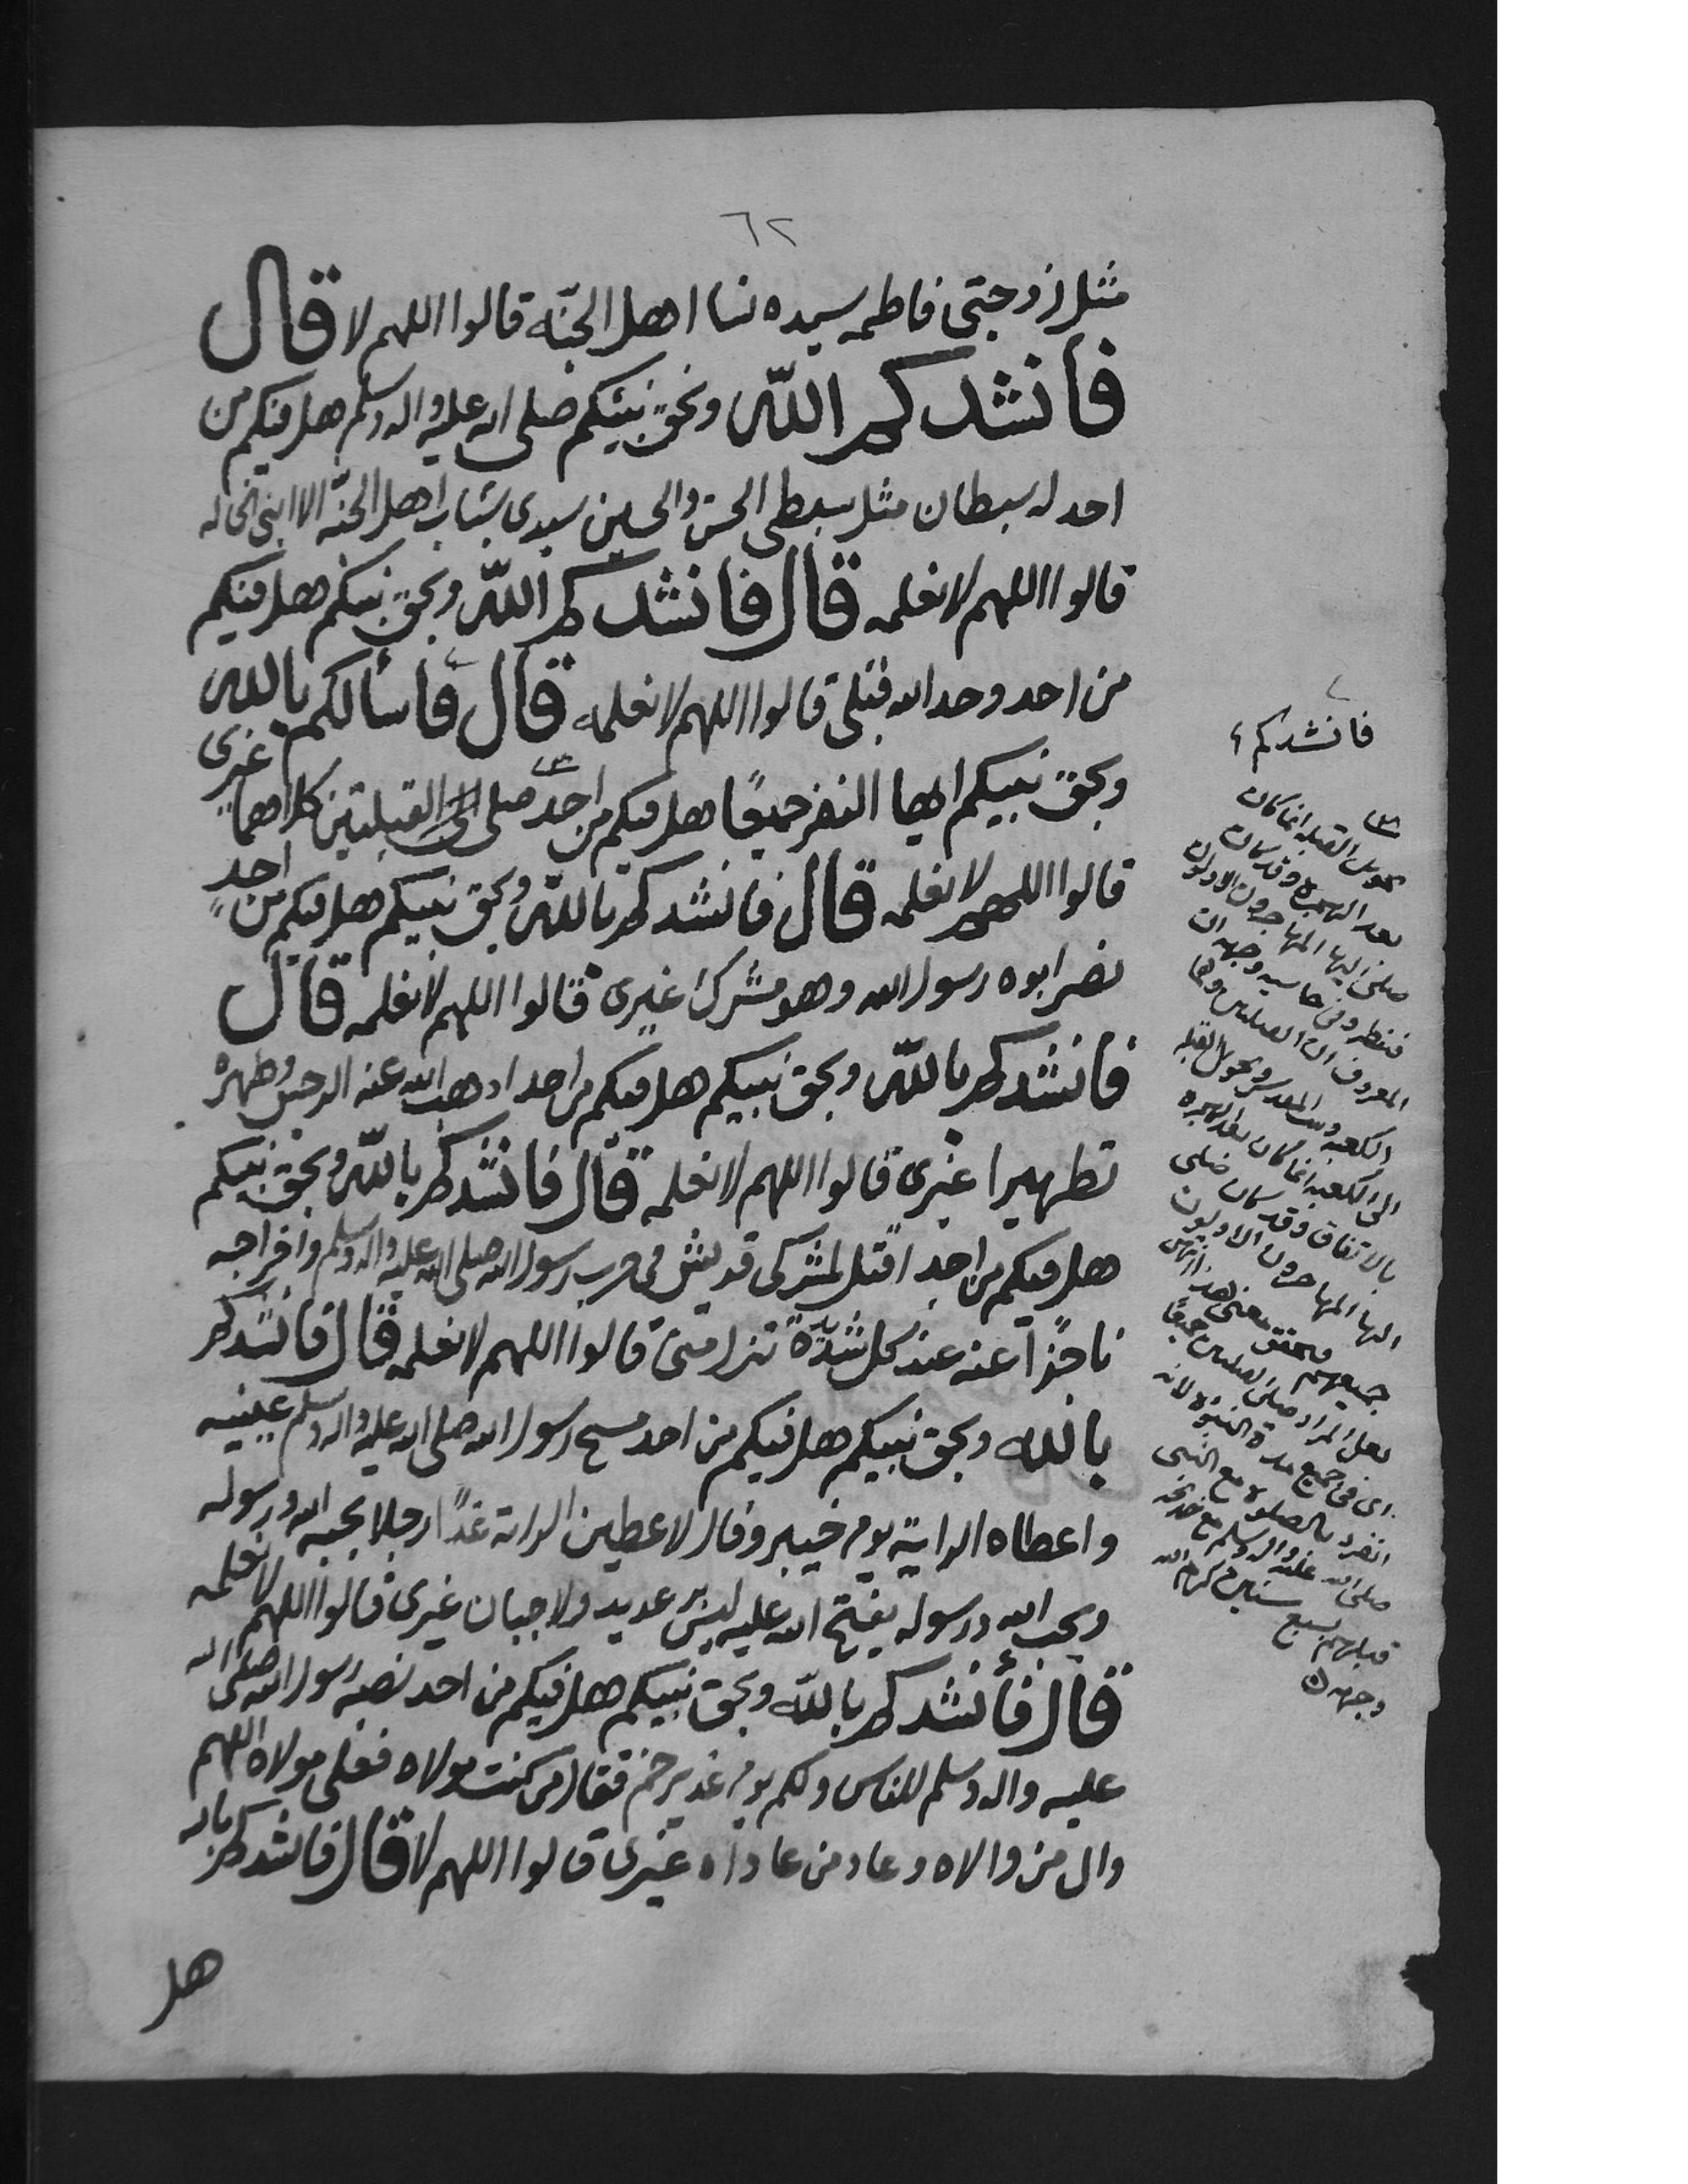 ٦٢
مثل زوجتى فاطمه سيده نسا اهل الجنّه قالوا اللهم لا قال
فأنشدكم اللّه وبحق نبيّكم صلى الله عليه واله وسلم هل فيكم من
احد له سبطان مثل سبطى الحسن والحسين سيدى شباب اهل الجنّه الا ابنى الخاله
قالوا اللهم لا نعلمه قال فانشدكم اللّه وبحق نبيكم هل فيكم
من احد وحد الله قبلى قالوا اللهم لا نعلمه قال فأسألكم بالله
وبحق نبيكم ايها النفر جميعًا هل فيكم من احد صلى الى القبلتين كلاهما غيرى
قالوا اللهم لا نعلمه قال فانشدكم باللّه وبحق نبيكم هل فيكم من احد
نصر ابوه رسول الله وهو مشرك غيرى قالوا اللهم لا نعلمه قال
فأنشدكم باللّه وبحق نبيكم هل فيكم من احد اذهب الله عنه الرجس وطهره
تطهيرا غيرى قالوا اللهم لا نعلمه قال فانشدكم باللّه وبحق نبيكم
هل فيكم من احد اقتل لمشركى قريش فى حرب رسول الله صلى الله عليه واله وسلم وافراجه
ناجزًا عنه عند كل شدّة تنزل منى قالوا اللهم لا نعلمه قال فانشدكم
بالله وبحق نبيكم هل فيكم من احد مسح رسول الله صلى الله عليه واله وسلم عينيه
واعطاه الراية يوم خيبر وقال لاعطين الراية غدًا رجلا يحبه الله ورسوله
ويحب الله ورسوله يفتح الله عليه ليس ولا جبان غيرى قالوا اللهم لا نعلمه
قال فأنشدكم باللّه وبحق نبيكم هل فيكم من احد نصبه رسول الله صلى الله
عليه واله وسلم للناس ولكم يوم غدير خم فقال من كنت مولاه فعلى مولاه اللهم
وال من والاه وعاد من عاداه غيرى قالوا اللهم لا قال فانشدكم بالله
هل
فانشدكم
تحويل القبله انما كان
بعد الهجره وقد كان
صلى اليها المهاجرون الاولون
فينظر وفى حاشيه وجهه ان
المعروف ان القبلتين وهما
الكعبه وبيت المقدس وتحويل القبله
الى الكعبه انما كان بعد الهجره
بالاتفاق وقد كان صلى
اليها المهاجرون الاولون
جميعهم معنى هذا انتهى
لعل المراد صلى القبلتين جميعًا
اى فى جميع مدة النبوه لانه
انفرد بالصلوه مع النبى
صلى الله عليه واله وسلم مع خديجه
قبلهم بسبع سنين كرم الله
وجهه